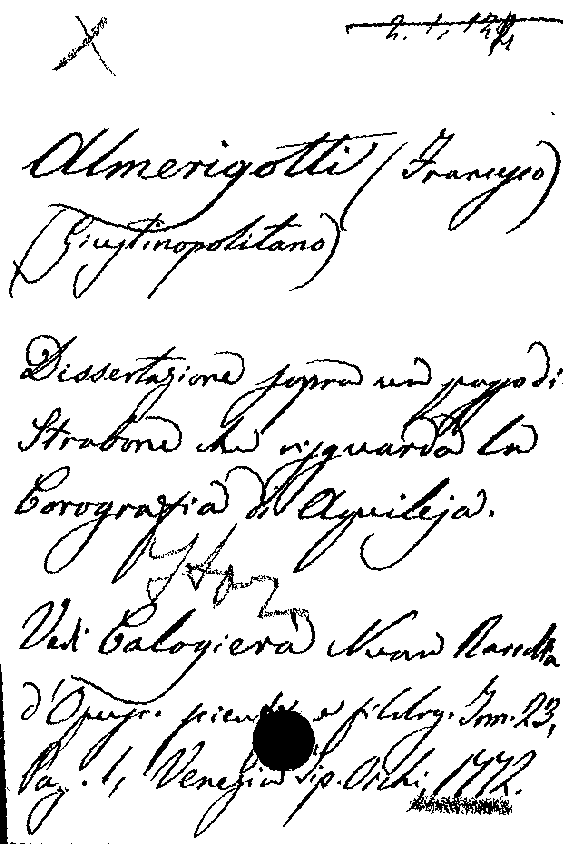 Almerigotti (Francesco)
(Giustinopolitano)
Dissertazione sopra un passo di
Strabone che risguarda la
Corografia di Aquileja.
Vedi Calogierà Nuova Raccolta
d'Opusc. scient. e filolog. Tom. 23,
Pag. 1, Venezia Tip. Occhi, 1772.